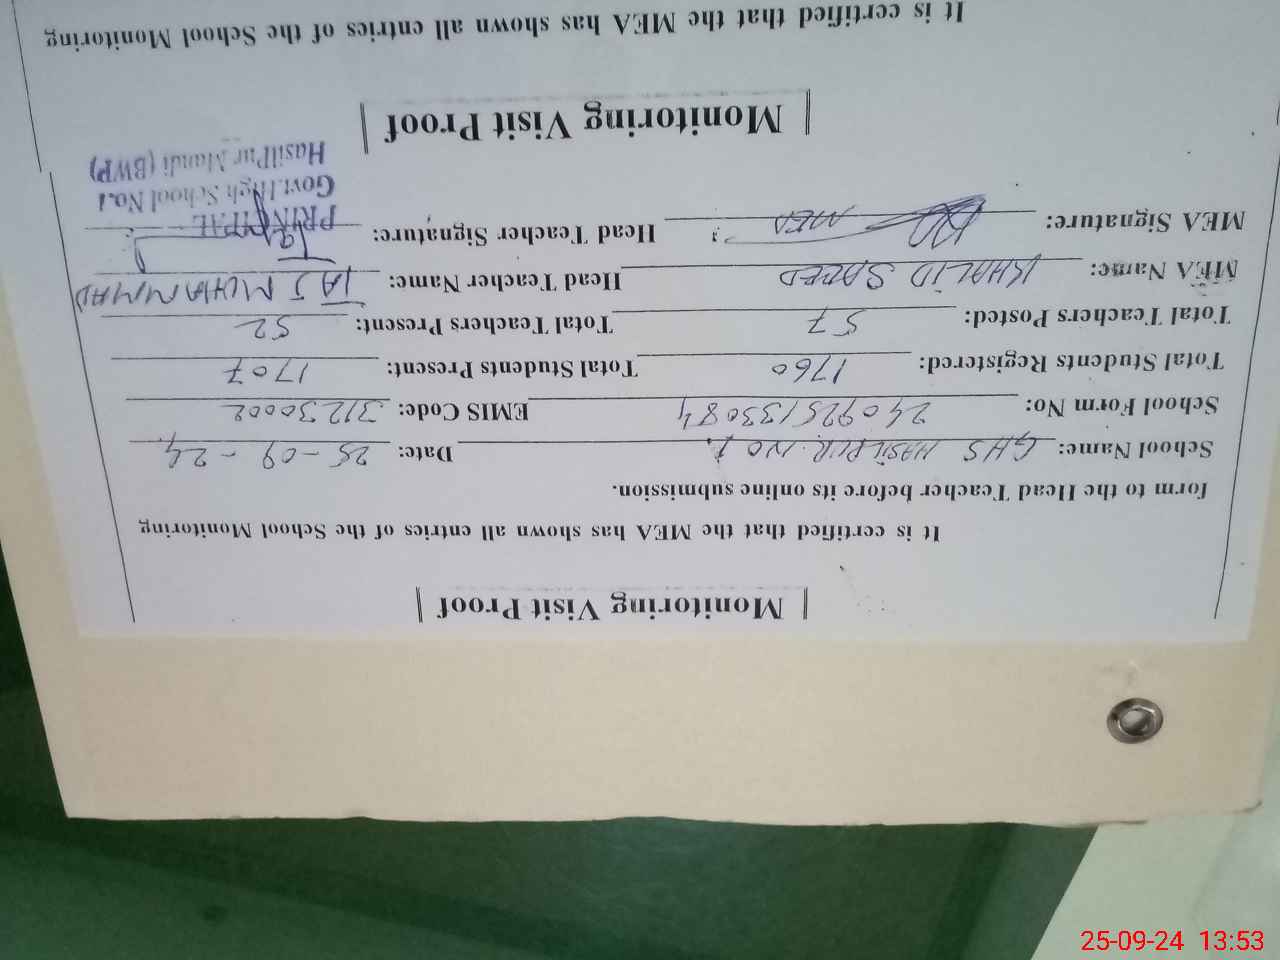 Monitoring Visit Proof
It is certified that the MEA has shown all entries of the School Monitoring
form to the Head Teacher before its online submission.
School Name: GHS HASILPUR NO 1. Date: 25-09-24
School Form No: 240925133084 EMIS Code: 31230002
Total Students Registered: 1760 Total Students Present: 1707
Total Teachers Posted: 57 Total Teachers Present: 52
MEA Name: KHALID SAEED Head Teacher Name: TAJ MUHAMMAD
MEA Signature: MEA Head Teacher Signature:
PRINCIPAL
Govt. High School No.1
HasilPur Mandi (BWP)
Monitoring Visit Proof
It is certified that the MEA has shown all entries of the School Monitoring
25-09-24 13:53